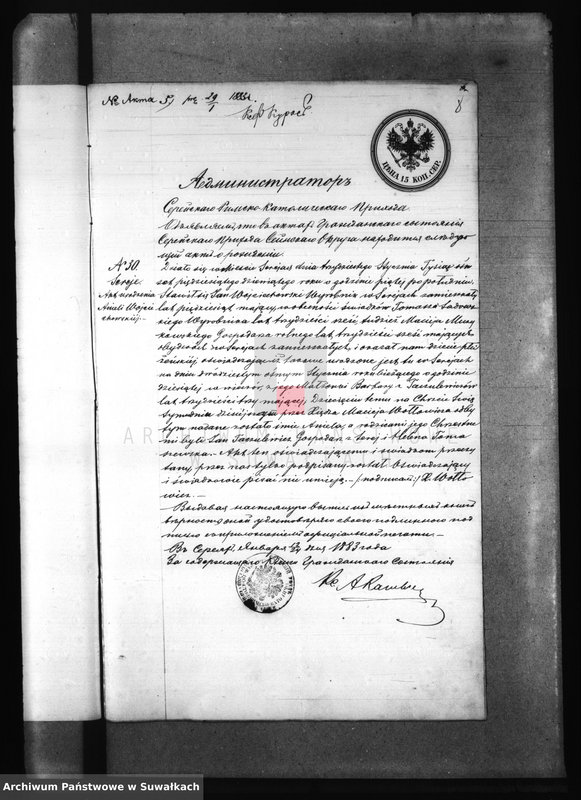 № Акта 5, 29/1 188
8
ЦѢНА 15 КОП. СЕР.
Администраторъ
Серейскаго Римско-Католическаго Прихода
Объявляетъ что въ актахъ Гражданскаго состоянія
Серейскаго Прихода Сейнскаго Округа находится слѣдую-
щій актъ о рожденіи
№ 30.
Sereje.
Akt urodzenia
Anieli Wojcie
chowskiej
Działo się w Serejach dnia trzydziestego Stycznia Tysiąc ośm
set pięćdziesiątego dziewiątego roku o godzinie piątej po południu.
Stawił się Jan Wojciechowski Wyrobnik w Serejach zamieszkały
lat pięćdziesiąt mający, w obecności świadków Tomasza
Wyrobnika lat trzydzieści sześć, tudzież Macieja
Gospodarza rolnego lat trzydzieści sześć mających
obydwóch w Serejach zamieszkałych, i okazał nam dziecię płci
żeńskiej, oświadczając iż takowe urodzone jest tu w Serejach
na dniu dwudziestym ósmym Stycznia roku bieżącego o godzinie
dziesiątej w wieczór, z jego Małżonki Barbary z
lat trzydzieści trzy mającej. Dziecięciu temu na Chrzcie Świę
tym odbytym dzisiaj przez Księdza Macieja Wołłowicza
nadane zostało imie Aniela, a rodzicami jego Chrzestne
mi byli Jan Gospodarz z Serej i Helena Toma
szewska. Akt ten oświadczającemu i świadkom przeczy
tany, przez nas tylko podpisany został. Oświadczający
i świadkowie pisać nie umieją. (podpisał) X. Wołło
wicz.
Выдавая настоящую выпись изъ метрической книги
вѣрность оной удостовѣряю своею подписью
съ приложеніемъ оффиціальной печати.
Въ Серее, Января дня 1883 года
За содержащаго Книги Гражданскаго Состоянія
Archiwum Państwowe w Suwałkach